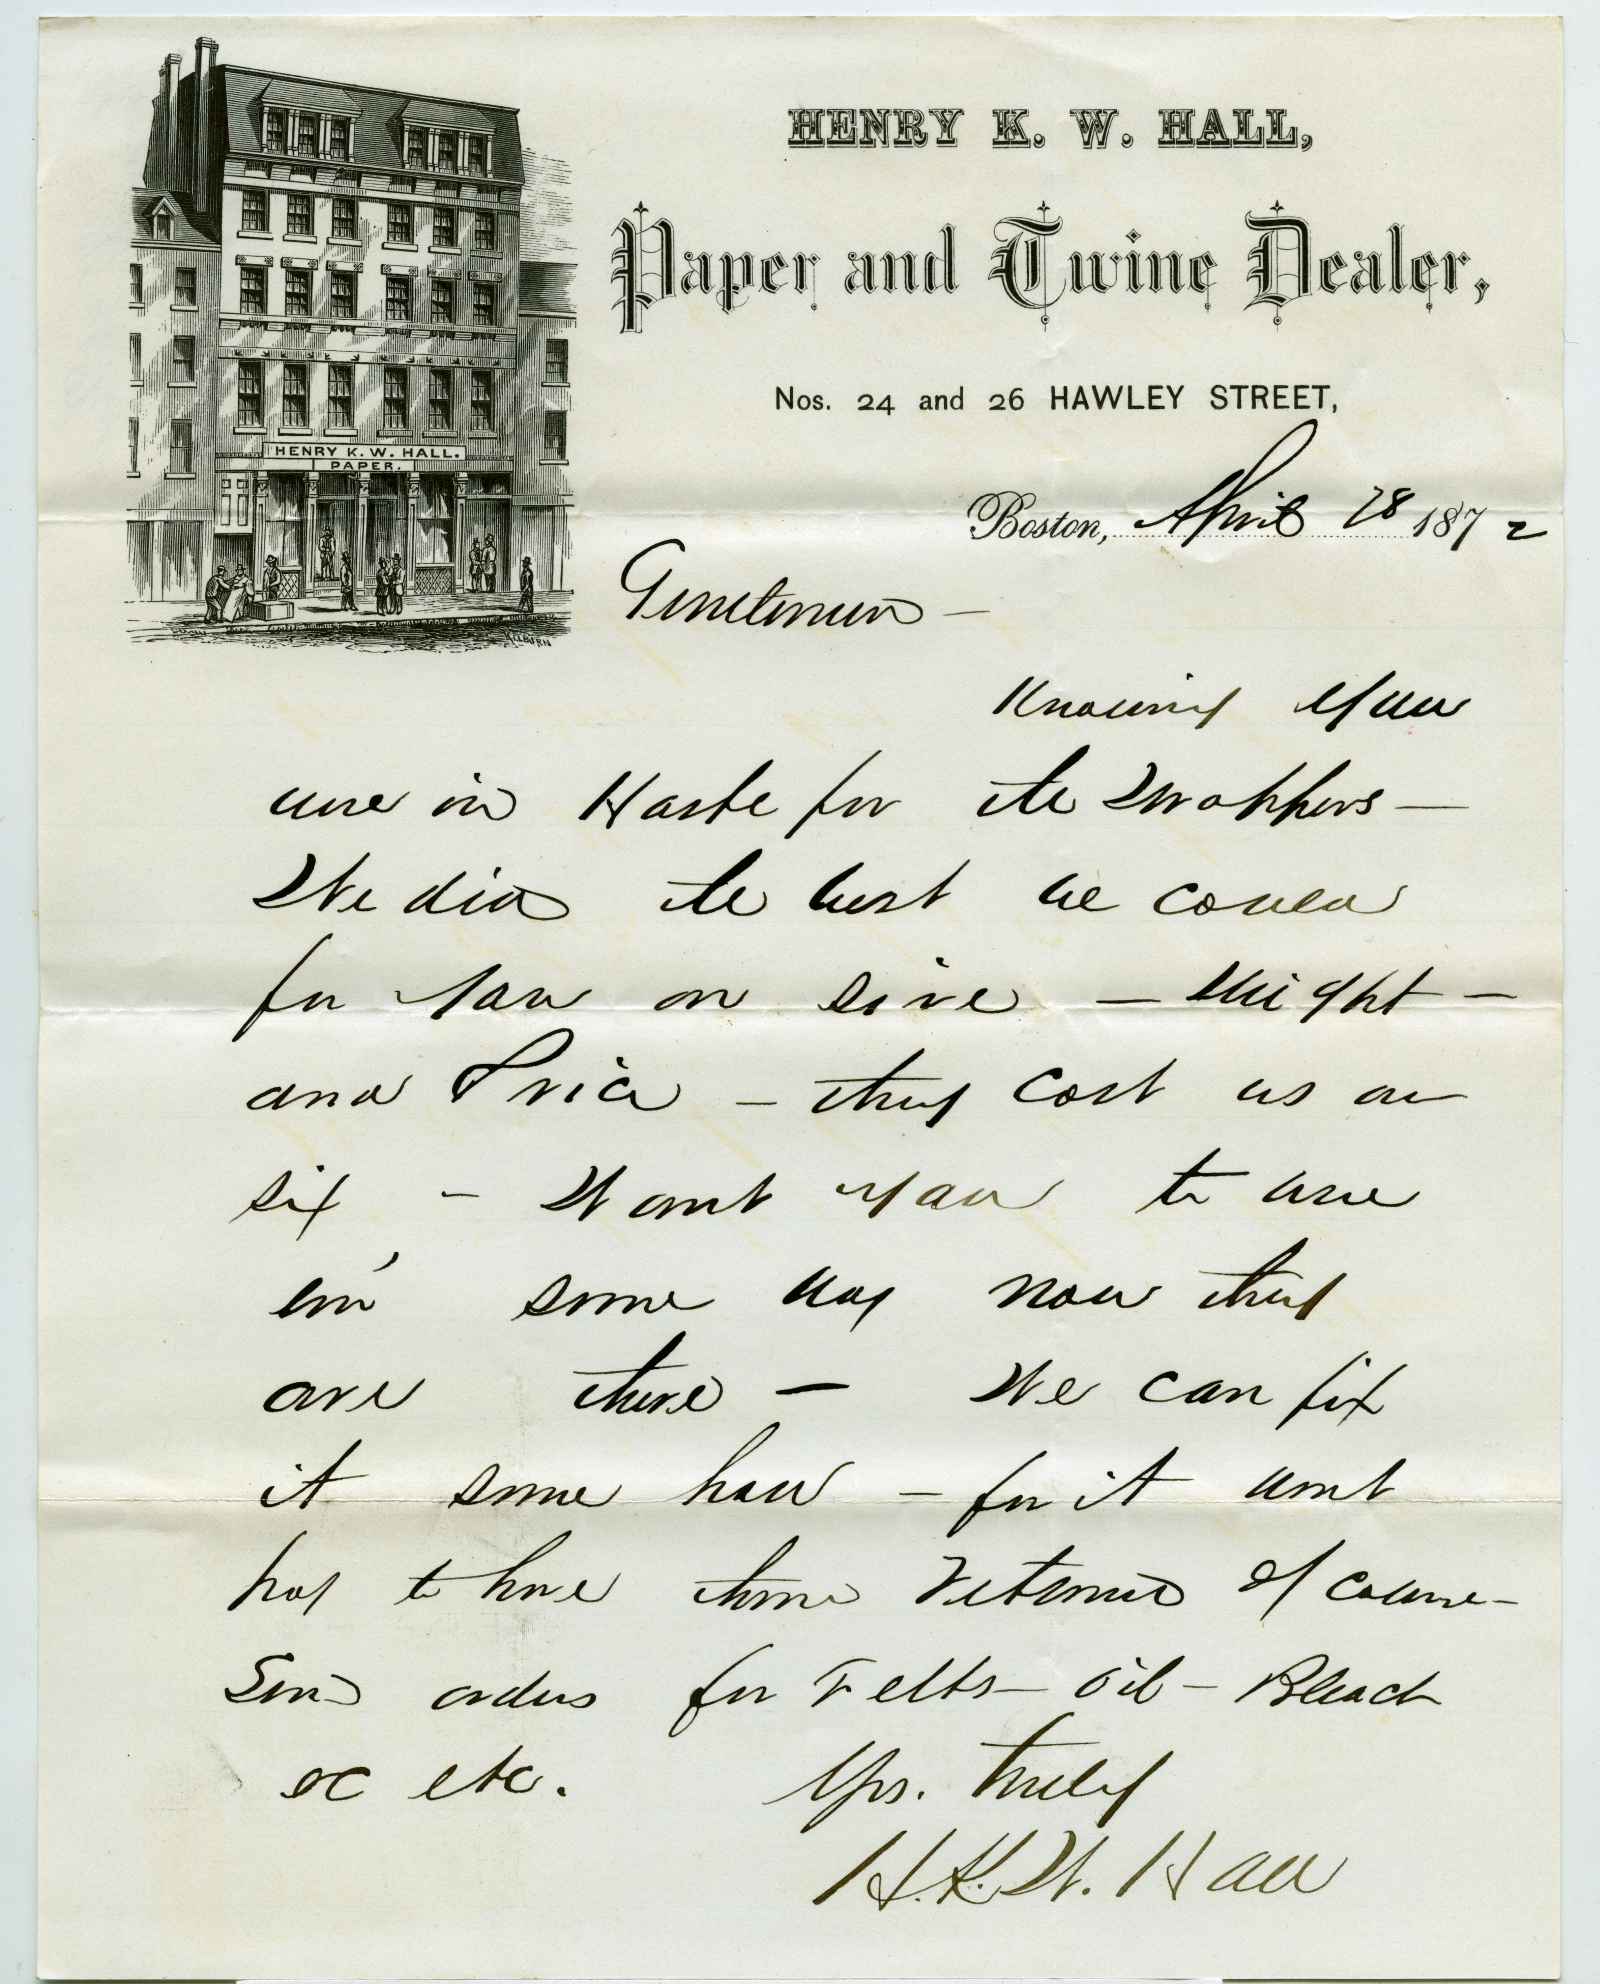 HENRY K. W. HALL,
Paper and Twine Dealer,
Nos. 24 and 26 HAWLEY STREET,
HENRY K. W. HALL.
PAPER.
KILBURN
Boston, April 28 1872
Gentlemen —
Knowing you
were in Haste for the Wrappers —
We did the best we could
for you on size — Weight —
and Price — they cost us
six — Want you to use
em' some way now they
are there — We can fix
it some how — for it wont
pay to have them returned of course —
Send orders for Felts — Oil — Bleach
&c etc. Yrs. truly
H. K. W. Hall